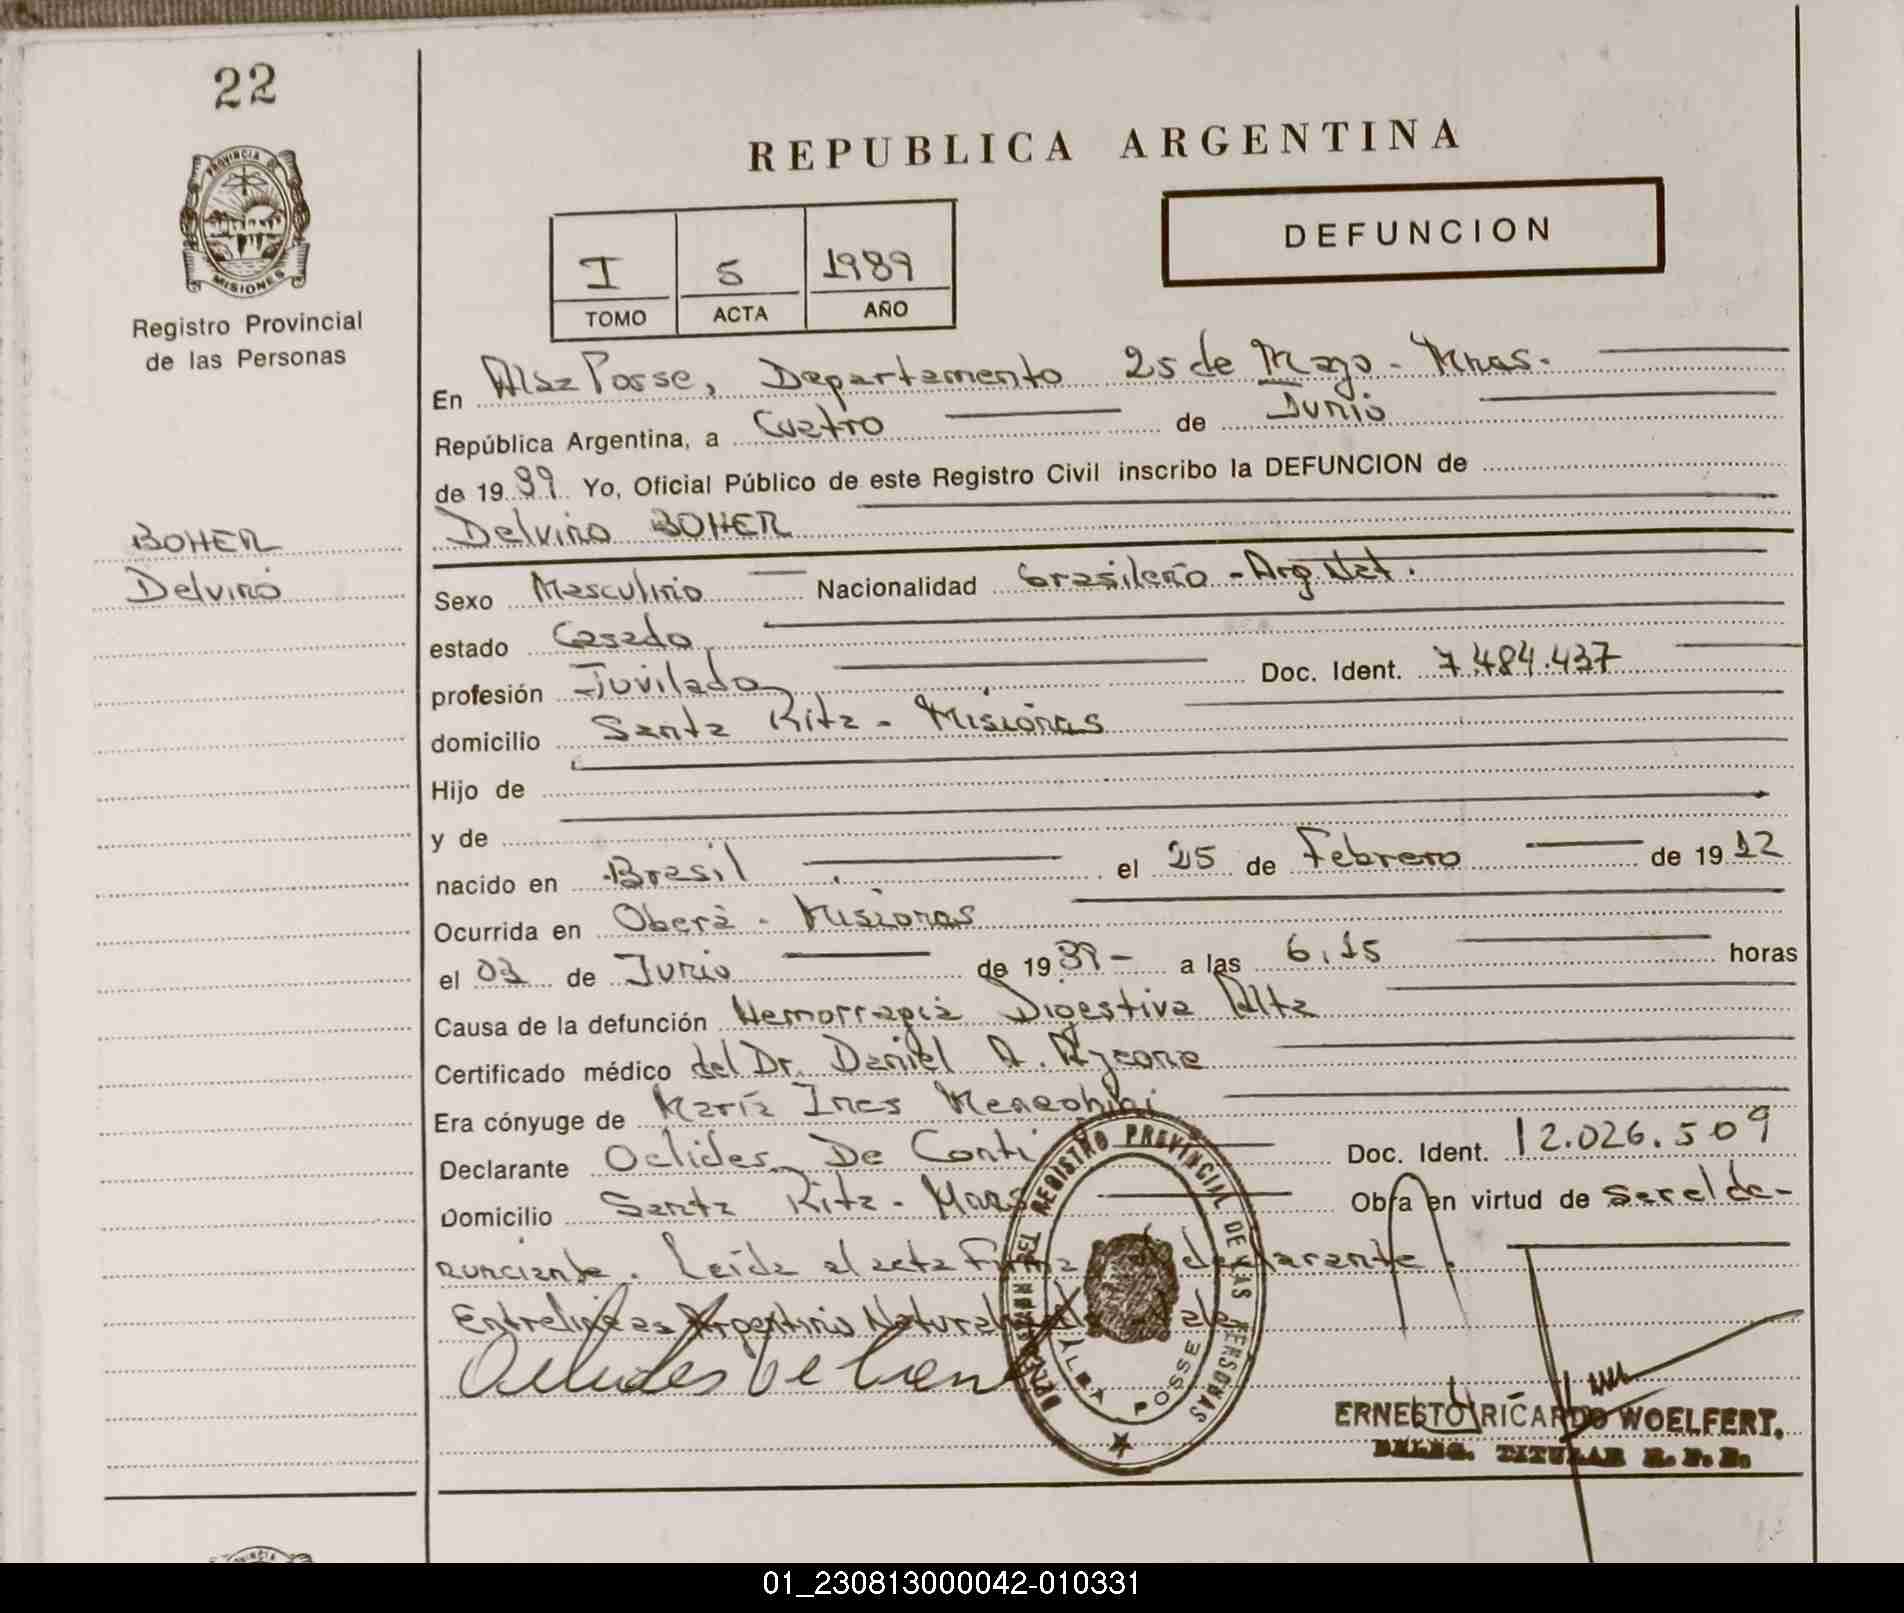 22
PROVINCIA DE
MISIONES
Registro Provincial
de las Personas
BOHER
Delvino
REPUBLICA ARGENTINA
DEFUNCION
I 5 1989
TOMO ACTA AÑO
En Alba Posse, Departamento 25 de Mayo - Mnes.
República Argentina, a Cuatro de Junio
de 19 89 Yo, Oficial Público de este Registro Civil inscribo la DEFUNCION de
Delvino BOHER
Sexo Masculino Nacionalidad brasileño - Arg Nat.
estado Casado
profesión Juvilado Doc. Ident. 7.484.437
domicilio Santa Rita - Misiones
Hijo de
y de
nacido en Brasil el 25 de Febrero de 19 12
Ocurrida en Oberá - Misiones
el 03 de Junio de 19 89 - a las 6,15 horas
Causa de la defunción Hemorragia Digestiva Alta
Certificado médico del Dr. Daniel A.
Era cónyuge de María Ines Meneghini
Declarante Oclides De Conti Doc. Ident. 12.026.509
Domicilio Santa Rita - Mnes Obra en virtud de ser el de-
nunciante. Leída el acta Firma el declarante.
Entrelineas Argentino Naturalizado Vale
Oclides De Conti
REGISTRO PROVINCIAL DE LAS PERSONAS
ALBA POSSE
ERNESTO RICARDO WOELFERT.
DELEG. TITULAR R. P. P.
01_230813000042-010331